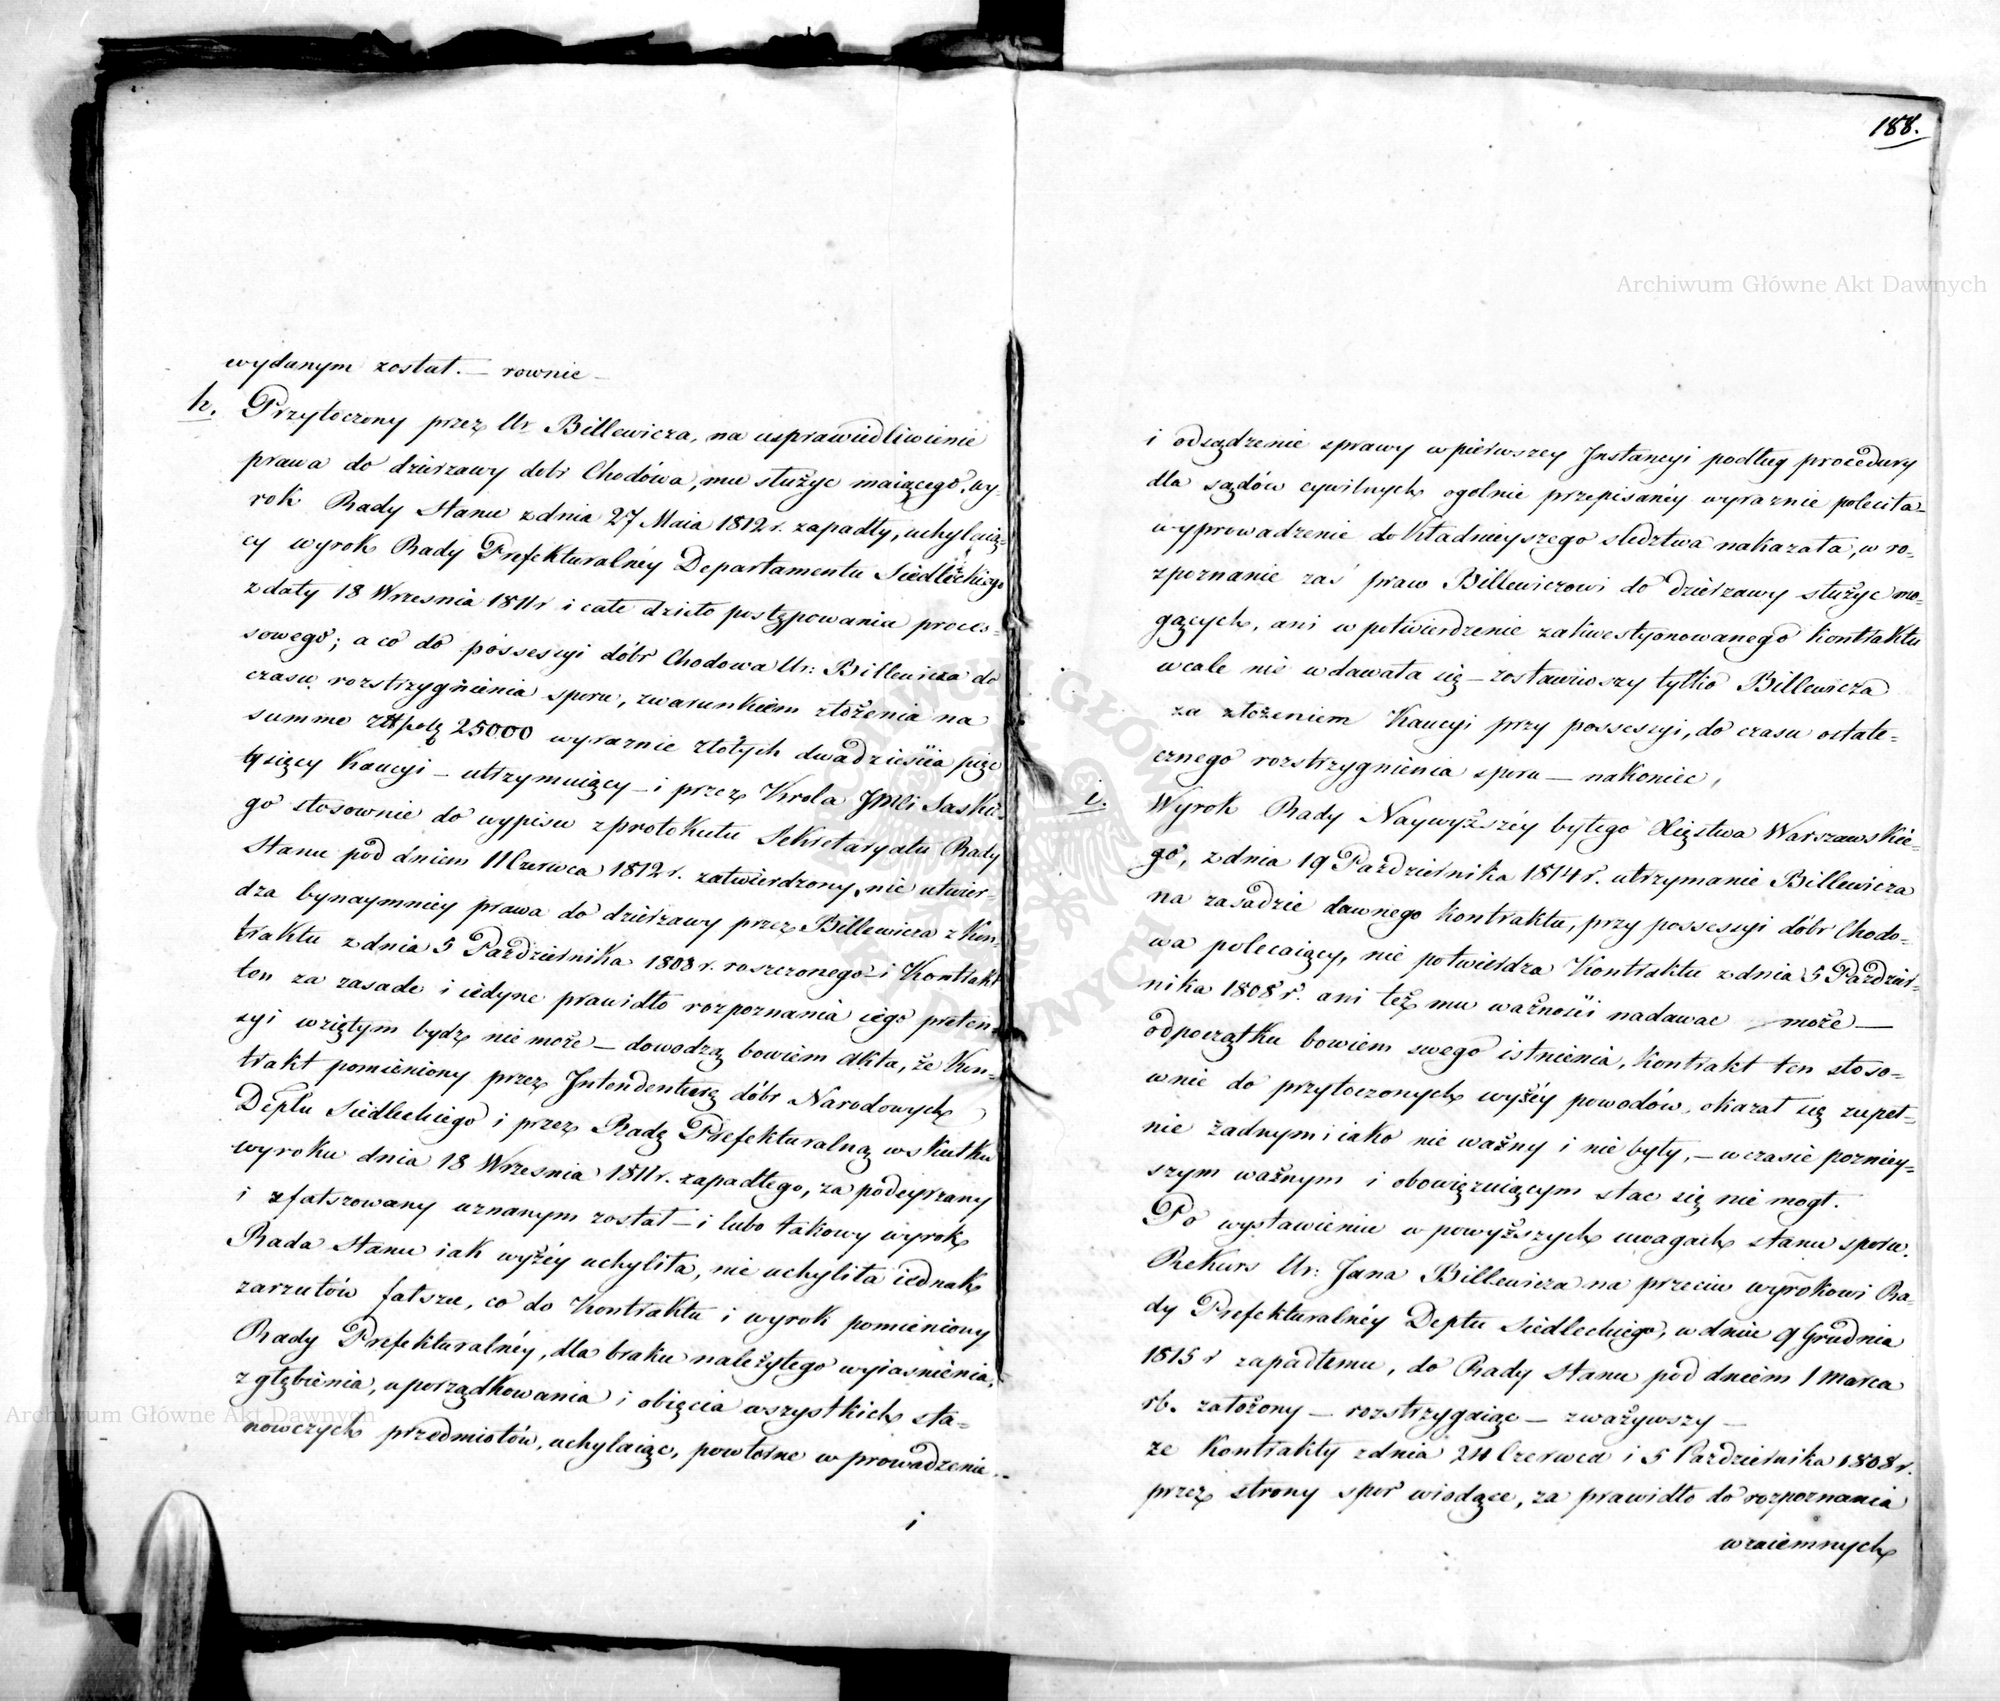 wydanym został. — rownie —
h. Przytoczony przez Ur Billewicza, na usprawiedliwienie
prawa do dzierzawy dobr Chodówa, mu służyc maiącego, wy-
rok Rady Stanu z dnia 27 Maia 1812 r. zapadły, uchylaią-
cy wyrok Rady Prefekturalnéy Departamentu Siedleckiego
z daty 18 Wrzesnia 1811 r i całe dzieło postępowania proces-
sowego; a co do possessyi dóbr Chodowa Ur: Billewicza do
czasu rozstrzygnienia sporu, z warunkiem złożenia na
summe Złłpolz 25000 wyraznie złotych dwadziesiia pięc
tysięcy Kaucyi — utrzymuiący — i przez Krola JMci Saskie-
go stosownie do wypisu z protokułu Sekretaryatu Rady
Stanu pod dniem 11 Czerwca 1812 r. zatwierdzony, nie utwier-
dza bynaymniey prawa do dzierzawy przez Billewicza z Kon-
traktu z dnia 5 Października 1808 r. roszczonego — i Kontrakt
ten za zasade i iedyne prawidło rozpoznania iego preten-
syi wziętym bydz nie może — dowodzą bowiem Akta, że Kon-
trakt pomieniony przez Intendenturę dóbr Narodowych
Deptu Siedleckiego i przez Radę Prefekturalną w skutku
wyroku dnia 18 Wrzesnia 1811 r. zapadłego, za podeyrzany
i zfałszowany uznanym został — i lubo takowy wyrok
Rada Stanu iak wyżéy uchyliła, nie uchyliła iednak
zarzutów fałszu, co do Kontraktu i wyrok pomieniony
Rady Prefekturalnéy, dla braku należytego wyiasnienia,
zgłębienia, uporządkowania i obięcia wszystkich sta-
nowczych przedmiotów, uchylaiąc, powtorne wprowadzenie
i
188.
i odsądzenie sprawy w pierwszey Instancyi podług procedury
dla sądów cywilnych ogolnie przepisanéy wyraznie poleciła —
wyprowadzenie dokładnieyszego sledztwa nakazała, w ro-
zpoznanie zaś praw Billewiczowi do dzierzawy służyc mo-
gących, ani w potwierdzenie zakwestyonowanego Kontraktu
wcale nie wdawała się — zostawiwszy tylko Billewicza
za złożeniem Kaucyi przy possessyi, do czasu ostate-
cznego rozstrzygnienia sporu — nakoniec,
i. Wyrok Rady Naywyższéy byłego Xięstwa Warszawskie-
go, z dnia 19 Października 1814 r. utrzymanie Billewicza
na zasadzie dawnego Kontraktu, przy possessyi dóbr Chodo-
wa polecaiący, nie potwierdza Kontraktu z dnia 5 Paździer-
nika 1808 r. ani też mu ważności nadawac może —
od początku bowiem swego istnienia, Kontrakt ten stoso-
wnie do przytoczonych wyżéy powodów, okazał się zupeł-
nie żadnym i iako nie ważny i nie były, — w czasie pozniey-
szym ważnym i obowięzuiącym stac się nie mogł.
Po wystawieniu w powyższych uwagach stanu sporu.
Rekurs Ur: Jana Billewicza na przeciw wyrokowi Ra-
dy Prefekturalnéy Deptu Siedleckiego, w dniu 9 Grudnia
1815 r zapadłemu, do Rady Stanu pod dniem 1 Marca
rb. założony — rozstrzygaiąc — zważywszy —
ze Kontrakty z dnia 24 Czerwca i 5 Października 1808 r.
przez strony spor wiodące, za prawidło do rozpoznania
wzaiemnych
Archiwum Główne Akt Dawnych
Archiwum Główne Akt Dawnych